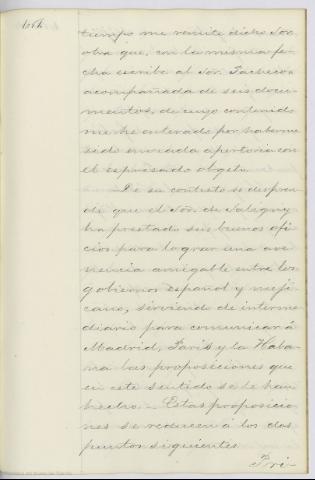 tiempo me remite dicho Sor.
otra que, con la misma fe-
cha escribe al Sor. Pacheco
acompañada de seis docu-
mentos, de cuyo contenido
me he enterado por haberme
sido enviada apertoria con
el espresado objeto.
De su contesto se despren-
de que el Sor. de Saligny
ha prestado sus buenos ofi-
cios para lograr una ave-
nencia amigable entre los
gobiernos español y meji-
cano, sirviendo de interme-
diario para comunicar á
Madrid, Paris y la Haba-
na las proposiciones que
en este sentido se le han
hecho. — Estas proposicio-
nes se reducen á los dos
puntos siguientes
Pri-